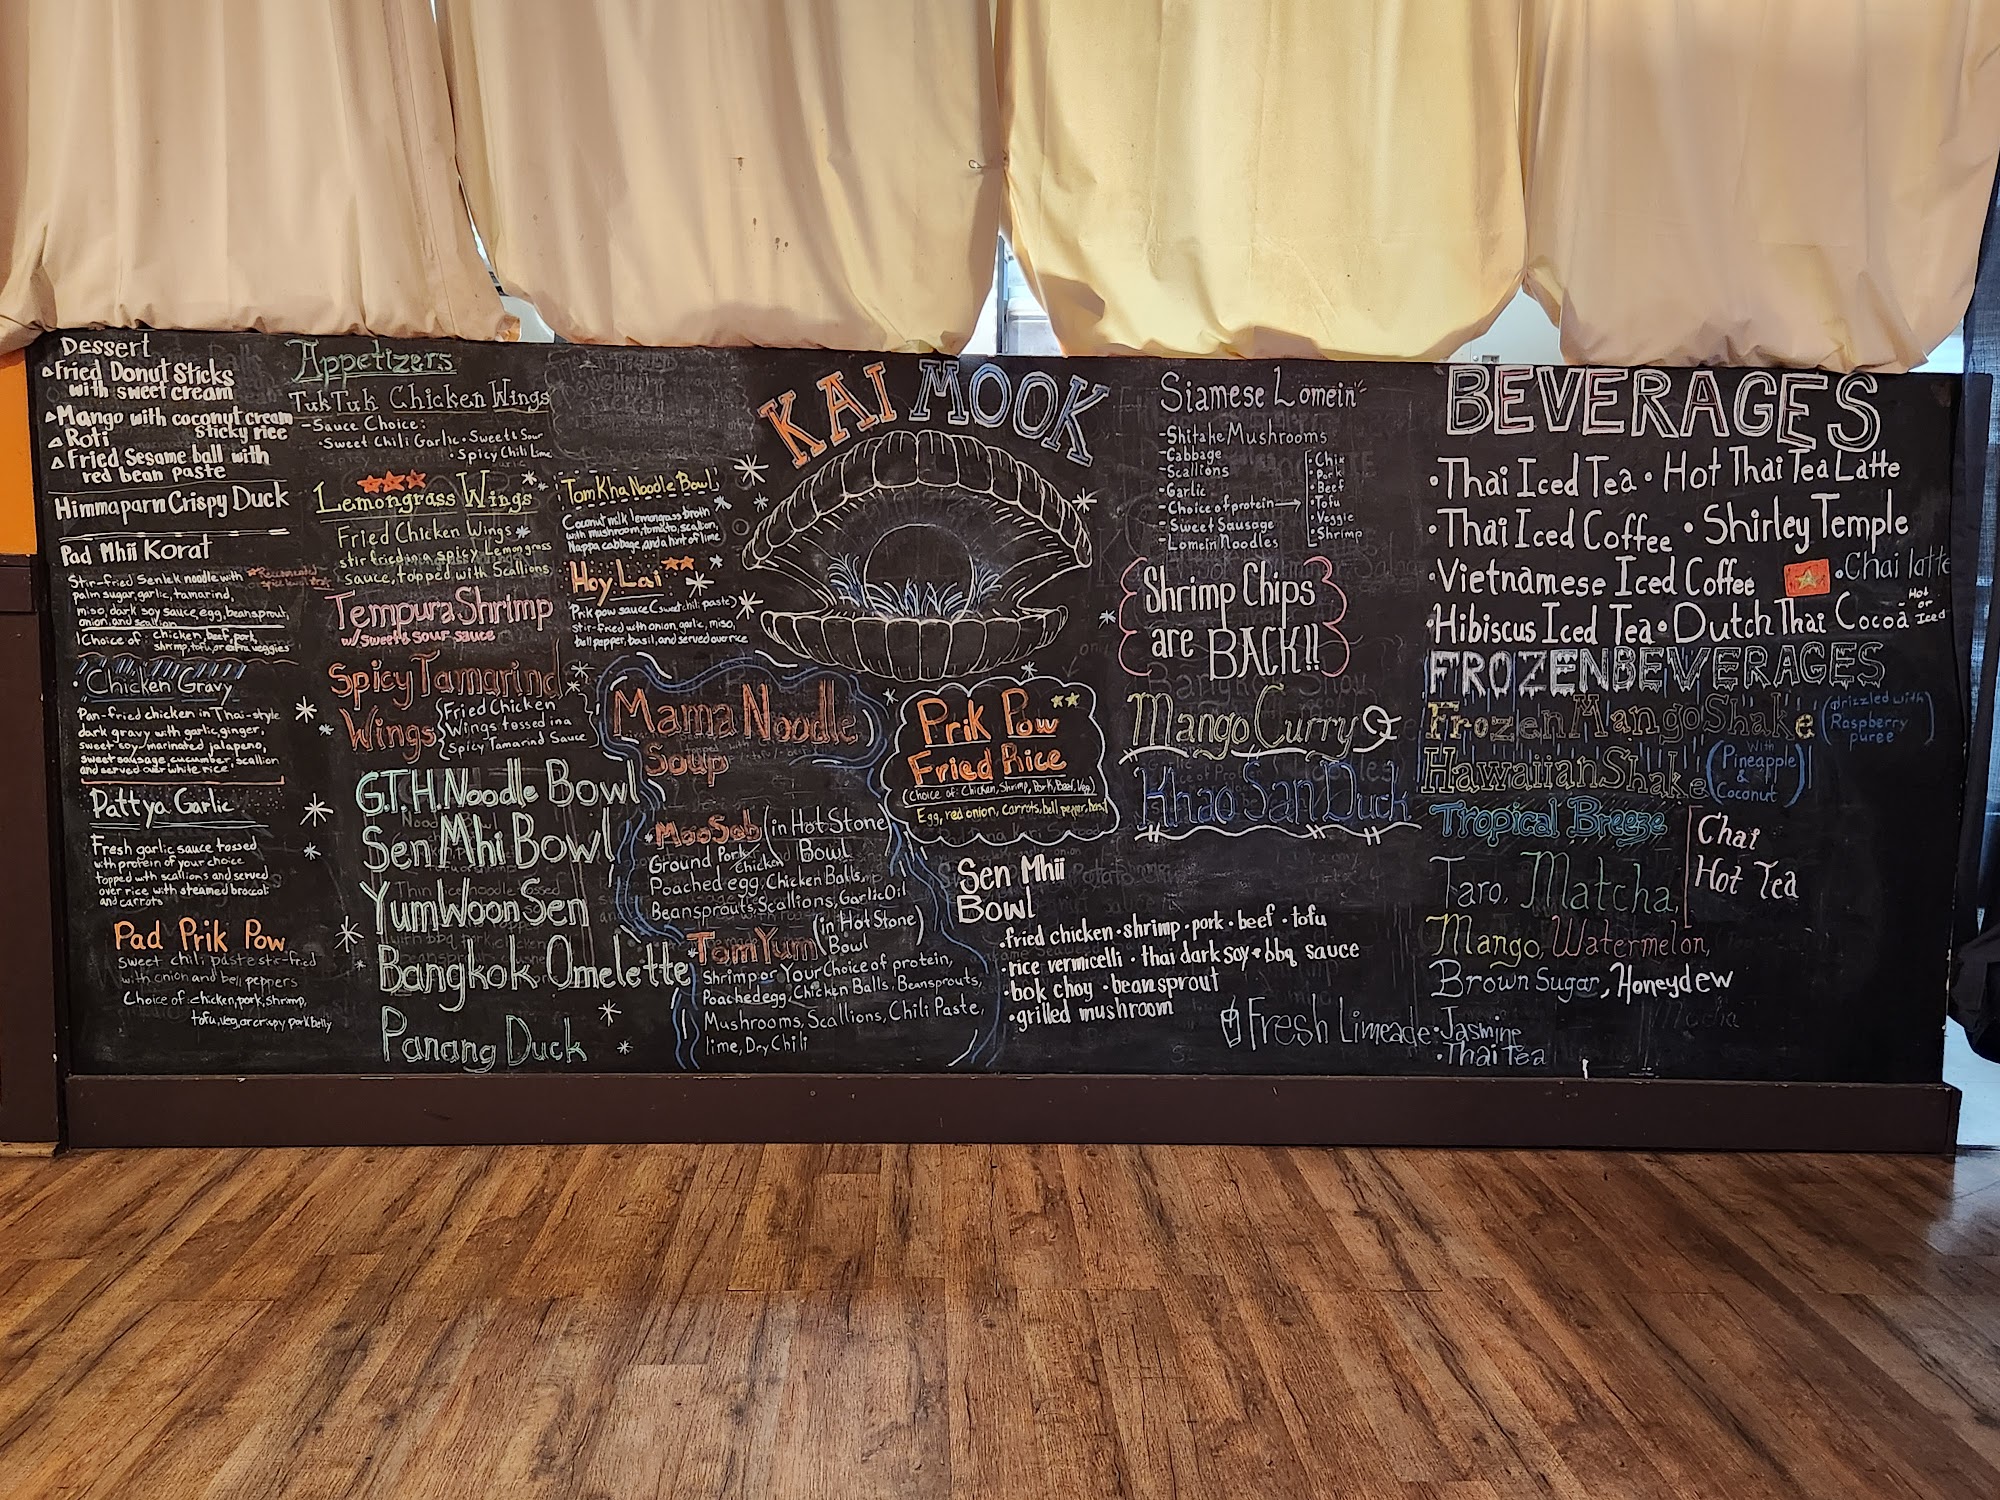 Dessert
Fried Donut Sticks
with sweet cream
Mango with coconut cream
sticky rice
Roti
Fried Sesame ball with
red bean paste
Himmaparn Crispy Duck
Pad Mhii Korat
Stir-fried Senlek noodle with
palm sugar, garlic, tamarind,
miso, dark soy sauce, egg, beansprout,
onion, and scallion
Choice of: chicken, beef, pork,
shrimp, tofu, or extra veggies
Chicken Gravy
Pan-fried chicken in Thai-style
dark gravy with garlic, ginger,
sweet soy, marinated jalapeno,
sweet sausage, cucumber, scallion
and served over white rice.
Pattya Garlic
Fresh garlic sauce tossed
with protein of your choice
topped with scallions and served
over rice with steamed broccoli
and carrots
Pad Prik Pow
sweet chili paste stir-fried
with onion and bell peppers
Choice of: chicken, pork, shrimp,
tofu, veg, or crispy pork belly
Appetizers
TukTuk Chicken Wings
- Sauce Choice:
• Sweet Chili Garlic • Sweet & Sour
• Spicy Chili Lime
Lemongrass Wings
Fried Chicken Wings
stir fried in a spicy Lemongrass
sauce, topped with Scallions
Tempura Shrimp
w/sweet & sour sauce
Spicy Tamarind
Wings
Fried Chicken
Wings tossed in a
Spicy Tamarind Sauce
G.T.H. Noodle Bowl
Sen Mhi Bowl
YumWoonSen
Bangkok Omelette
Panang Duck
TomKha Noodle Bowl
Coconut milk lemongrass broth
with mushroom, tomato, scallion,
Nappa cabbage, and a hint of lime
Hoy Lai
Prik pow sauce (sweet chili paste)
stir-fried with onion, garlic, miso,
bell pepper, basil, and served over rice
Mama Noodle
Soup
• MooSab (in Hot Stone
Bowl
Ground Pork, Chicken
Poached egg, Chicken Balls,
Beansprouts, Scallions, Garlic Oil
• TomYum (in Hot Stone)
Bowl
Shrimp or Your Choice of protein,
Poached egg, Chicken Balls, Beansprouts,
Mushrooms, Scallions, Chili Paste,
lime, Dry Chili
KAI MOOK
Prik Pow
Fried Rice
(Choice of: Chicken, Shrimp, Pork, Beef, Veg)
Egg, red onion, carrots, bell pepper, basil
Sen Mhii
Bowl
• fried chicken • shrimp • pork • beef • tofu
• rice vermicelli • thai dark soy & bbq sauce
• bok choy • beansprout
• grilled mushroom
Siamese Lomein
- Shitake Mushrooms
- Cabbage
- Scallions
- Garlic
- Choice of protein
- Sweet Sausage
- Lomein Noodles
• Chix
• Pork
• Beef
• Tofu
• Veggie
• Shrimp
Shrimp Chips
are BACK!!
Mango Curry
Khao San Duck
Fresh Limeade
BEVERAGES
• Thai Iced Tea • Hot Thai Tea Latte
• Thai Iced Coffee • Shirley Temple
• Vietnamese Iced Coffee • Chai latte
• Hibiscus Iced Tea • Dutch Thai Cocoa Hot or Iced
FROZEN BEVERAGES
Frozen Mango Shake (drizzled with Raspberry puree)
Hawaiian Shake (With Pineapple & Coconut)
Tropical Breeze
Chai
Hot Tea
Taro, Matcha,
Mango, Watermelon,
Brown Sugar, Honeydew
• Jasmine
• Thai Tea